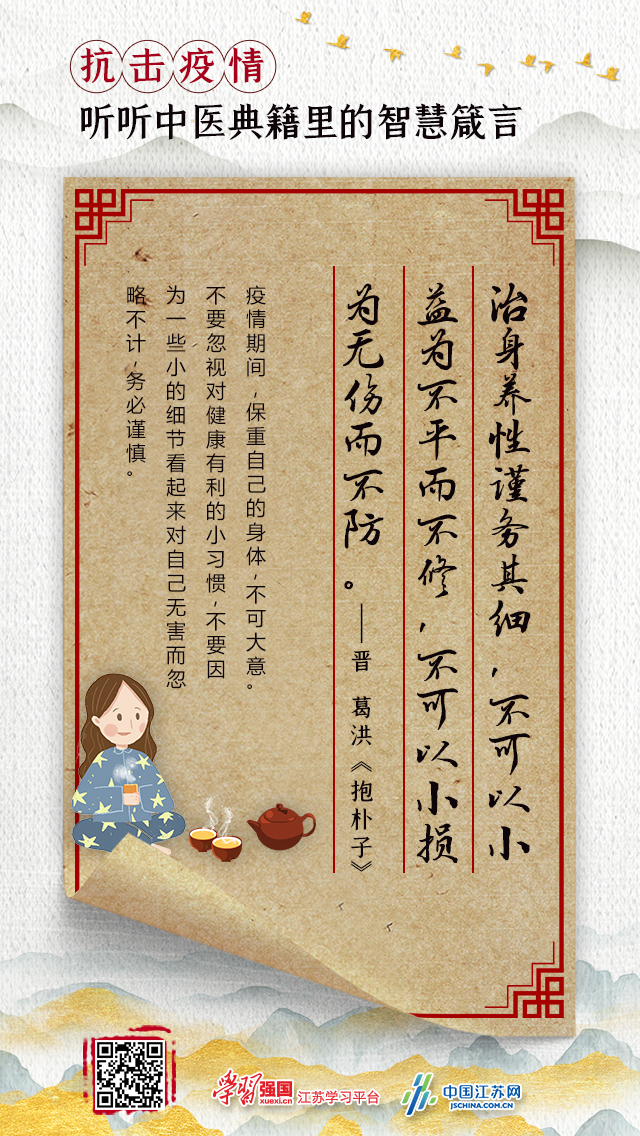 抗击疫情
听听中医典籍里的智慧箴言
治身养性谨务其细，不可以小
益为不平而不修，不可以小损
为无伤而不防。——晋 葛洪《抱朴子》
疫情期间，保重自己的身体，不可大意。
不要忽视对健康有利的小习惯，不要因
为一些小的细节看起来对自己无害而忽
略不计，务必谨慎。
学习强国
xuexi.cn
江苏学习平台
中国江苏网
JSCHINA.COM.CN